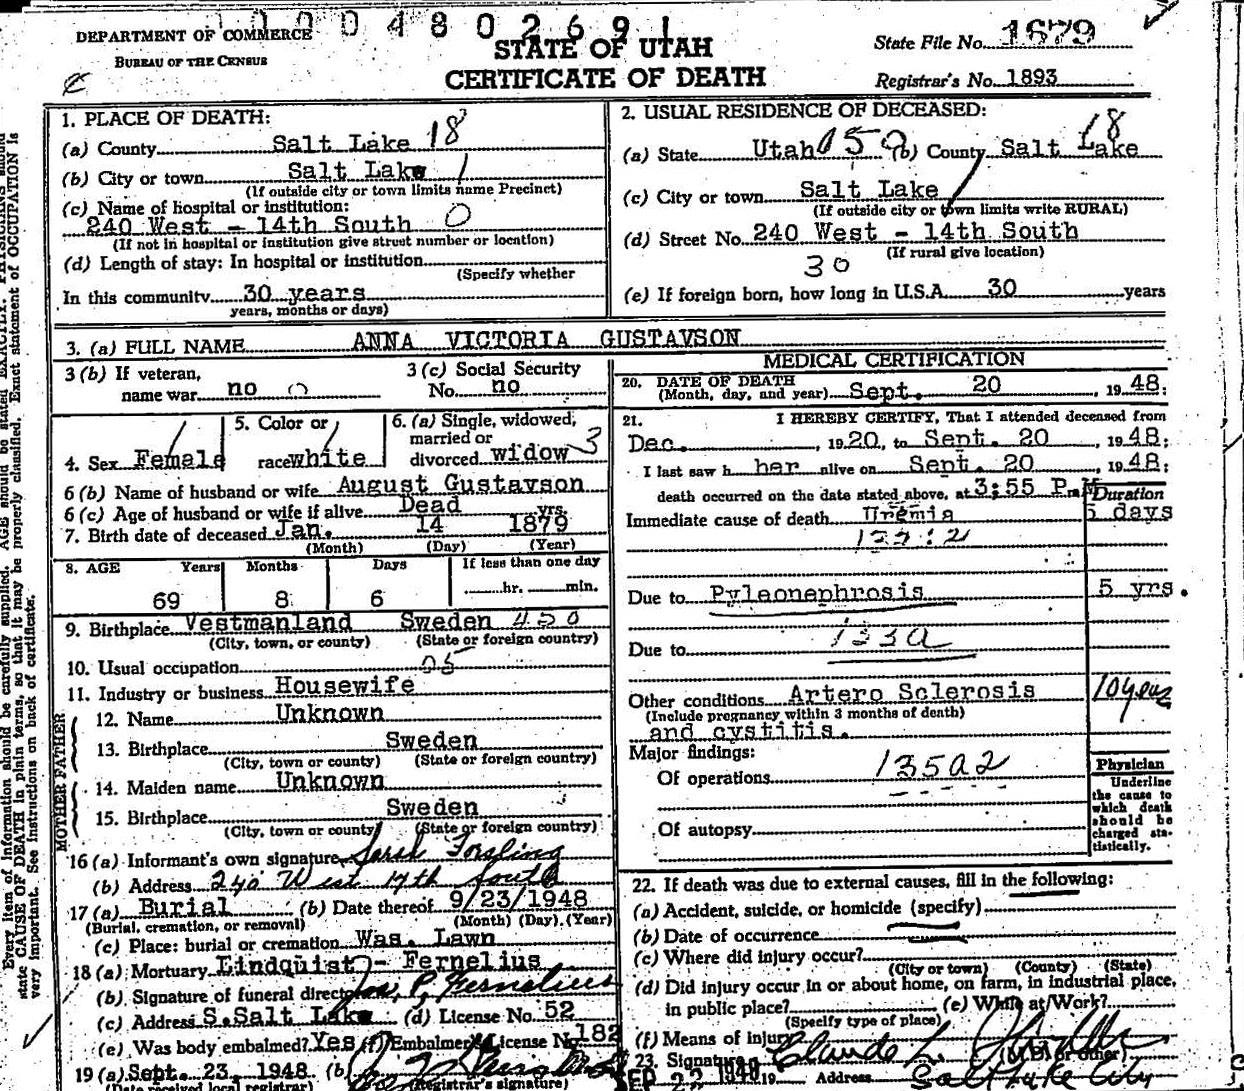 0004802691
DEPARTMENT OF COMMERCE
BUREAU OF THE CENSUS
STATE OF UTAH
CERTIFICATE OF DEATH
State File No. 1679
Registrar's No. 1893
1. PLACE OF DEATH:
(a) County Salt Lake 18
(b) City or town Salt Lake 1
(If outside city or town limits name Precinct)
(c) Name of hospital or institution:
240 West - 14th South 0
(If not in hospital or institution give street number or location)
(d) Length of stay: In hospital or institution
(Specify whether
In this community 30 years
years, months or days)
2. USUAL RESIDENCE OF DECEASED:
18
(a) State Utah 050 (b) County Salt Lake
(c) City or town Salt Lake
(If outside city or town limits write RURAL)
(d) Street No. 240 West - 14th South
(If rural give location)
30
(e) If foreign born, how long in U.S.A. 30 years
3. (a) FULL NAME ANNA VICTORIA GUSTAVSON
3 (b) If veteran,
name war no 0
3 (c) Social Security
No. no
4. Sex Female
5. Color or
race white
6. (a) Single, widowed,
married or
divorced widow 3
6 (b) Name of husband or wife August Gustavson
6 (c) Age of husband or wife if alive Dead yrs.
7. Birth date of deceased Jan. 14 1879
(Month) (Day) (Year)
8. AGE Years Months Days If less than one day
69 8 6 hr. min.
9. Birthplace Vestmanland Sweden 450
(City, town, or county) (State or foreign country)
10. Usual occupation 05
11. Industry or business Housewife
FATHER
12. Name Unknown
13. Birthplace Sweden
(City, town or county) (State or foreign country)
MOTHER
14. Maiden name Unknown
15. Birthplace Sweden
(City, town or county) (State or foreign country)
16 (a) Informant's own signature Sarah Forsling
(b) Address 240 West 14th South
17 (a) Burial (b) Date thereof 9/23/1948
(Burial, cremation, or removal) (Month) (Day) (Year)
(c) Place: burial or cremation Was. Lawn
18 (a) Mortuary Lindquist - Fernelius
(b) Signature of funeral director Jos. P. Fernelius
(c) Address S. Salt Lake (d) License No. 52
(e) Was body embalmed? Yes (f) Embalmer's License No. 182
19 (a) Sept. 23, 1948 (b)
(Date received local registrar) (Registrar's signature)
MEDICAL CERTIFICATION
20. DATE OF DEATH
(Month, day, and year) Sept. 20 1948:
21. I HEREBY CERTIFY, That I attended deceased from
Dec. , 1920, to Sept. 20, 1948:
I last saw h her alive on Sept. 20, 1948:
death occurred on the date stated above, at 3:55 P.M.
Duration
Immediate cause of death Uremia 5 days
Due to Pyleonephrosis 5 yrs.
133a
Due to
Other conditions Artero Sclerosis 10 years
(Include pregnancy within 3 months of death)
and cystitis.
Major findings:
Of operations 135a2
Of autopsy
Physician
Underline
the cause to
which death
should be
charged sta-
tistically.
22. If death was due to external causes, fill in the following:
(a) Accident, suicide, or homicide (specify)
(b) Date of occurrence
(c) Where did injury occur?
(City or town) (County) (State)
(d) Did injury occur in or about home, on farm, in industrial place,
in public place? (e) While at Work?
(Specify type of place)
(f) Means of injury
23. Signature Claude L. (M.D. or other)
SEP 22 1948 19 Address Salt Lake City
Every item of information should be carefully supplied. AGE should be stated EXACTLY. PHYSICIANS should
state CAUSE OF DEATH in plain terms, so that it may be properly classified. Exact statement of OCCUPATION is
very important. See instructions on back of certificate.